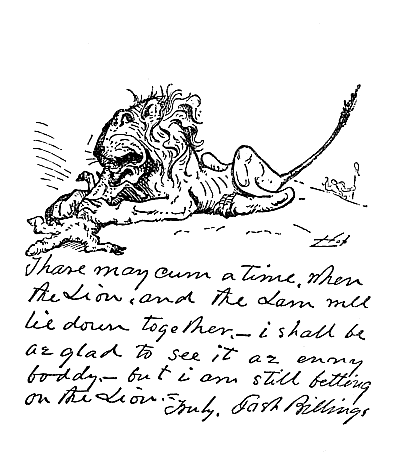 Thare may cum a time, when
the Lion, and the Lam will
lie down together,— i shall be
az glad to see it az enny
boddy,— but i am still betting
on the Lion.—Truly, Josh Billings